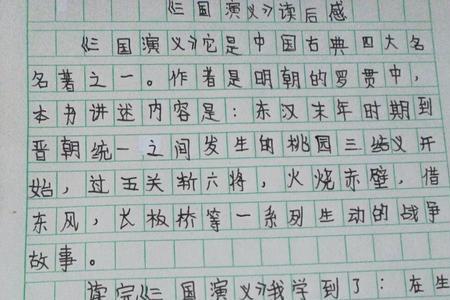 《三国演义》读后感
《三国演义》它是中国古典四大名
名著之一。作者是明朝的罗贯中，
本书讲述内容是：东汉末年时期到
晋朝统一之间发生的桃园三结义开
始，过五关斩六将，火烧赤壁，借
东风，长板桥等一系列生动的战争
故事。
读完《三国演义》我学到了：在生